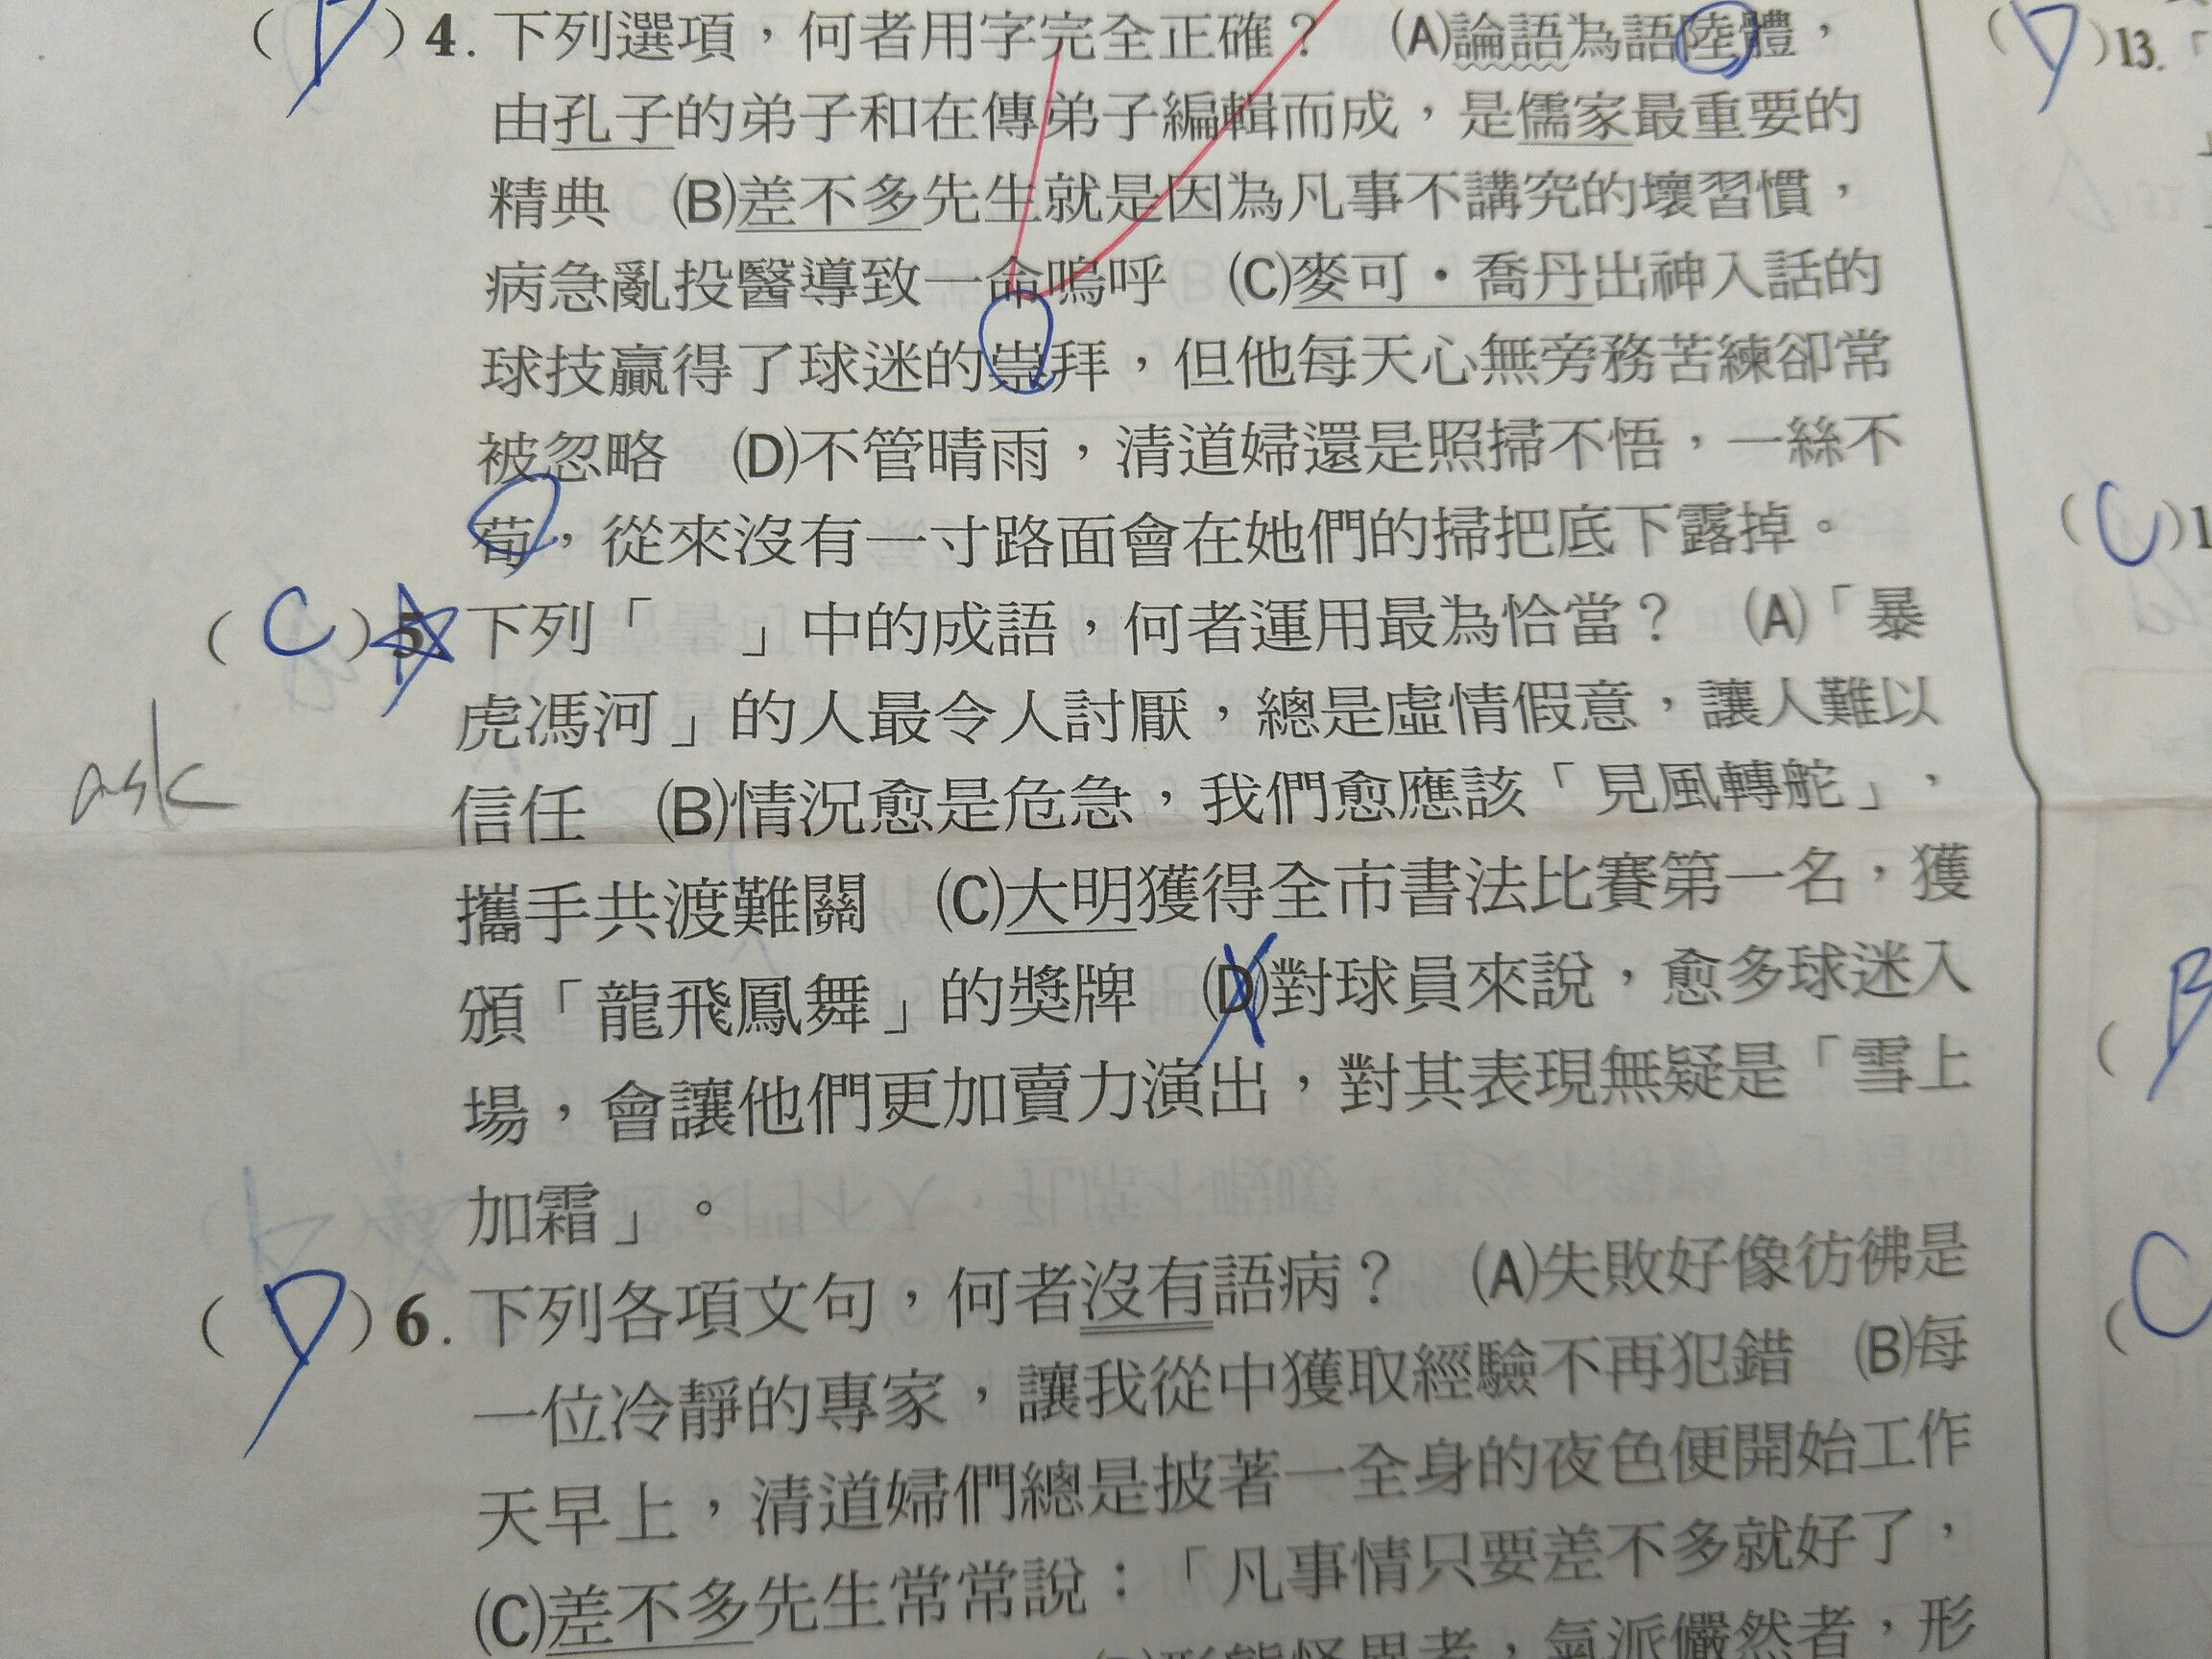 (D)4.下列選項，何者用字完全正確？ (A)論語為語陸體，
由孔子的弟子和在傳弟子編輯而成，是儒家最重要的
精典 (B)差不多先生就是因為凡事不講究的壞習慣，
病急亂投醫導致一命嗚呼 (C)麥可・喬丹出神入話的
球技贏得了球迷的崇拜，但他每天心無旁務苦練卻常
被忽略 (D)不管晴雨，清道婦還是照掃不悟，一絲不
荀，從來沒有一寸路面會在她們的掃把底下露掉。
(C)5.下列「　」中的成語，何者運用最為恰當？ (A)「暴
虎馮河」的人最令人討厭，總是虛情假意，讓人難以
ask
信任 (B)情況愈是危急，我們愈應該「見風轉舵」，
攜手共渡難關 (C)大明獲得全市書法比賽第一名，獲
頒「龍飛鳳舞」的獎牌 (D)對球員來說，愈多球迷入
場，會讓他們更加賣力演出，對其表現無疑是「雪上
加霜」。
(D)6.下列各項文句，何者沒有語病？ (A)失敗好像彷彿是
一位冷靜的專家，讓我從中獲取經驗不再犯錯 (B)每
天早上，清道婦們總是披著一全身的夜色便開始工作
(C)差不多先生常常說：「凡事情只要差不多就好了，
形態怪異者，氣派儼然者，形
(D)13.「
(C)1
(B
(C